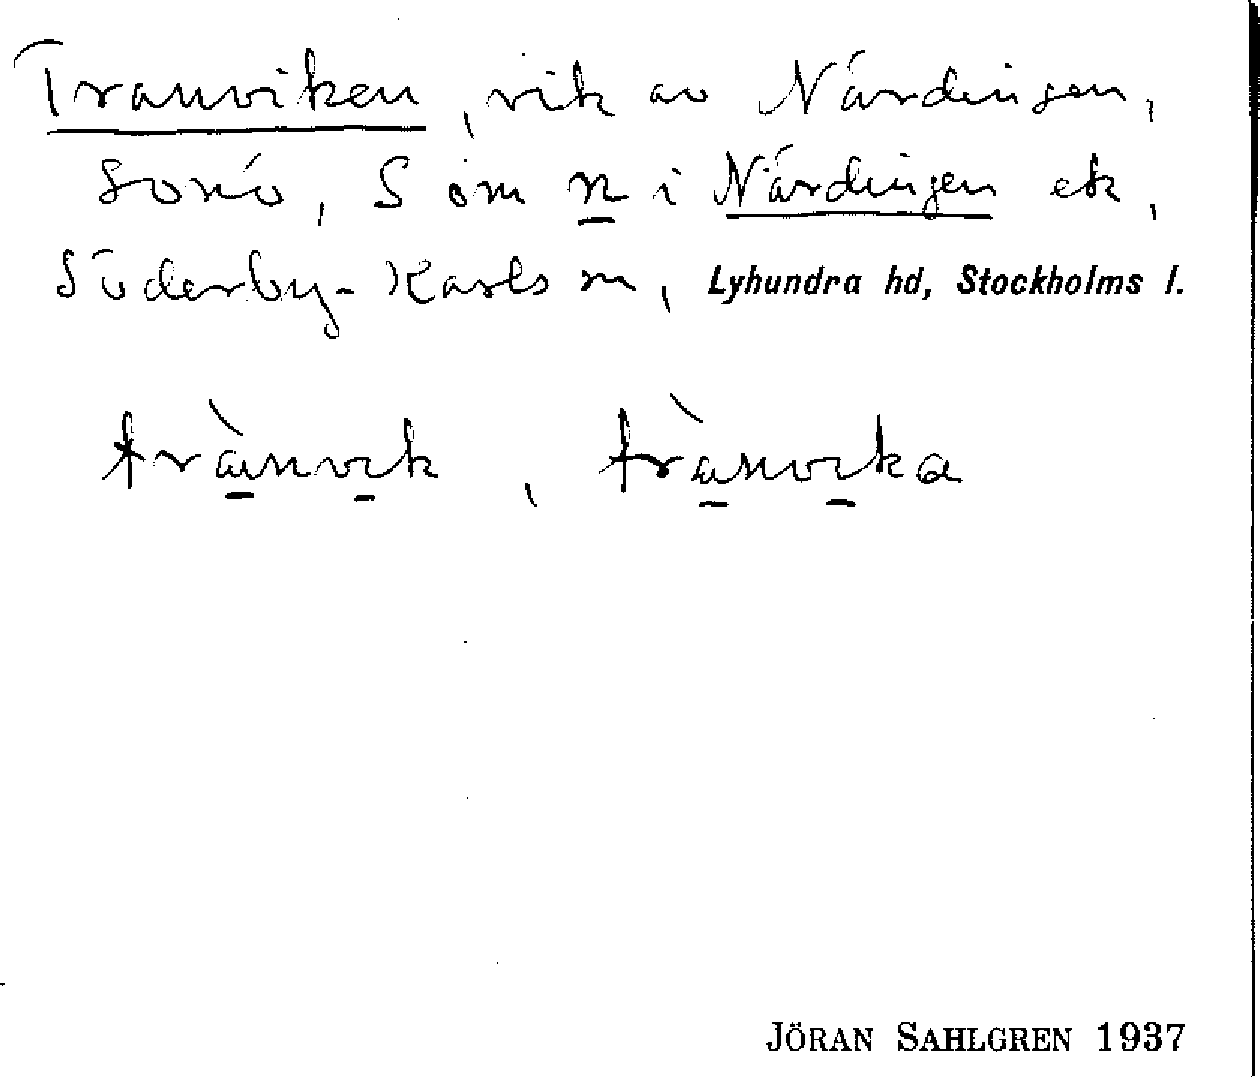 Tranviken, vik av Närdingen,
Sonö, S om n i Närdingen ek,
Söderby-Karls sn, Lyhundra hd, Stockholms l.
trànvik, trànvika
JÖRAN SAHLGREN 1937